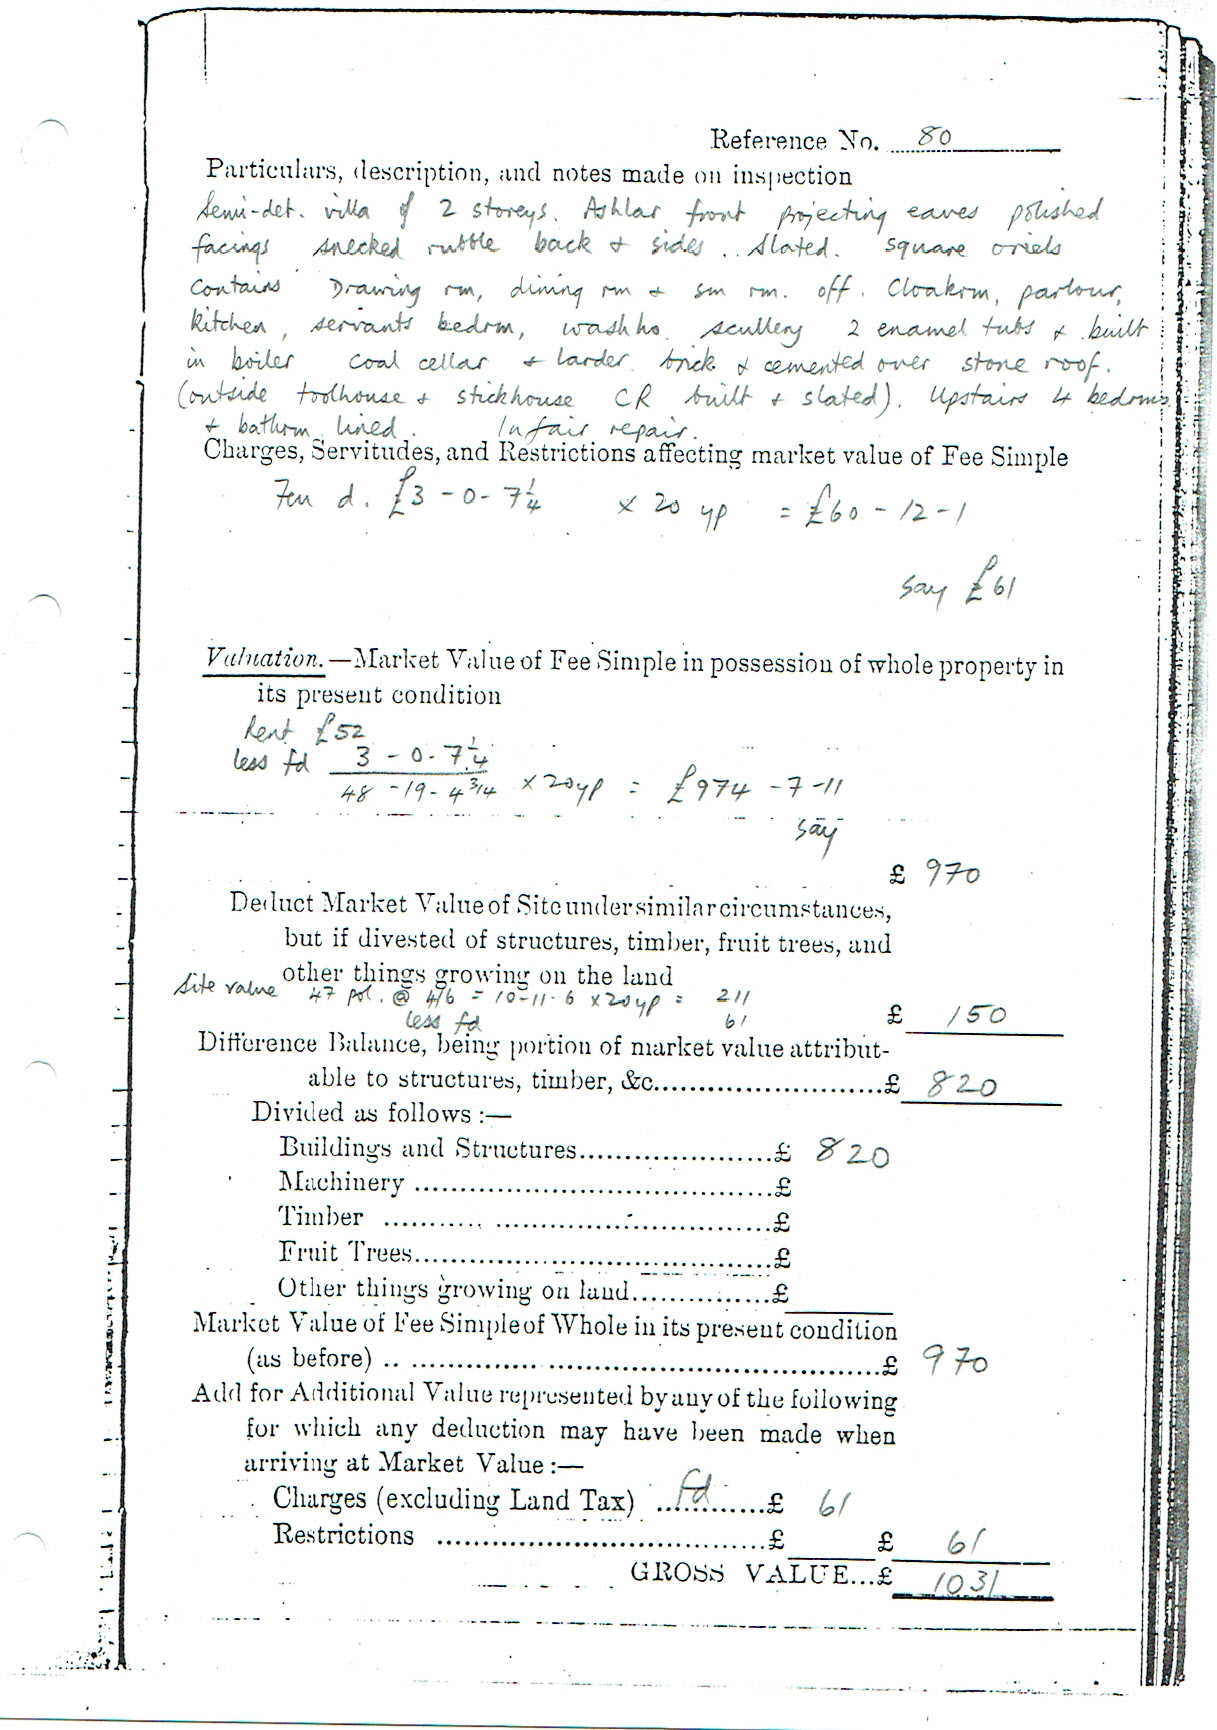 Reference No. 80
Particulars, description, and notes made on inspection
Semi-det. villa of 2 storeys. Ashlar front projecting eaves polished
facings snecked rubble back & sides .. Slated. Square oriels
Contains Drawing rm, dining rm & sm rm. off. Cloakrm, parlour,
kitchen, servants bedrm, wash ho. scullery 2 enamel tubs & built
in boiler coal cellar & larder brick & cemented over stone roof.
(outside toolhouse & stickhouse CR built & slated). Upstairs 4 bedrms
& bathrm lined. In fair repair.
Charges, Servitudes, and Restrictions affecting market value of Fee Simple
Feu d. £3 - 0 - 7¼ × 20 yp = £60 - 12 - 1
say £61
Valuation.—Market Value of Fee Simple in possession of whole property in
its present condition
Rent £52
less fd 3 - 0 - 7¼
48 - 19 - 4 3/4 × 20yp = £974 - 7 - 11
say
£ 970
Deduct Market Value of Site under similar circumstances,
but if divested of structures, timber, fruit trees, and
other things growing on the land
Site value 47 pol. @ 4/6 = 10-11-6 × 20yp = 211
less fd 61 £ 150
Difference Balance, being portion of market value attribut-
able to structures, timber, &c.........................£ 820
Divided as follows :—
Buildings and Structures......................£ 820
Machinery ........................................£
Timber ............................................£
Fruit Trees........................................£
Other things growing on land................£
Market Value of Fee Simple of Whole in its present condition
(as before) .. ..................................................£ 970
Add for Additional Value represented by any of the following
for which any deduction may have been made when
arriving at Market Value :—
Charges (excluding Land Tax) ..fd........£ 61
Restrictions ......................................£ £ 61
GROSS VALUE...£ 1031